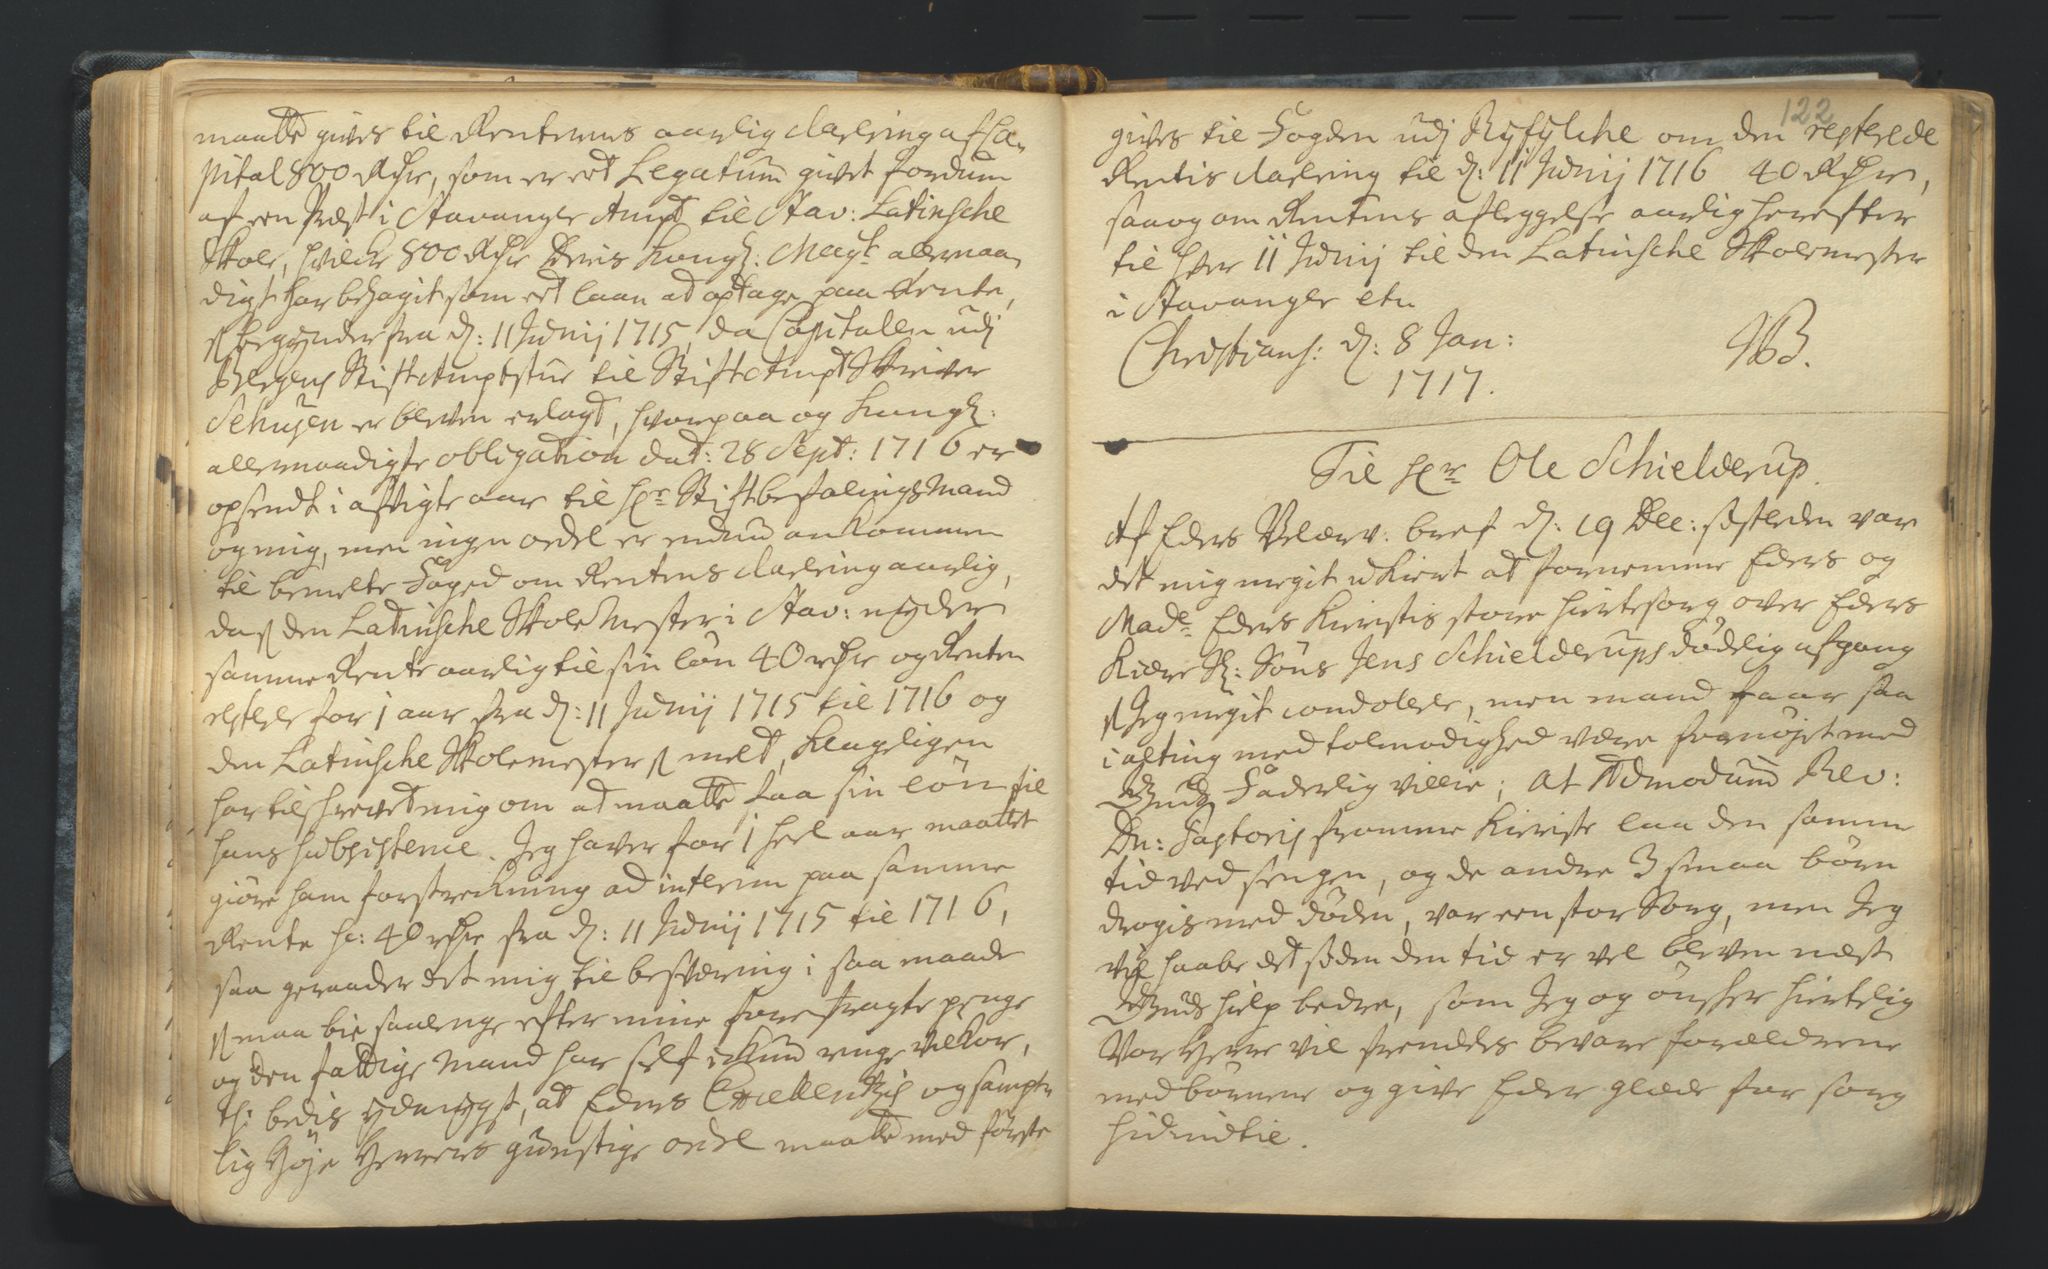 maatte gives til Renternes aarlig Clarering af Ca-
pital 800 Rdr, som er et Legatum givet fordum
af een Præst i Stavanger Ampt til Stav: Latinsche
Skole, hvilke 800 Rdr Deris Kongl: Mayt allernaa-
digst har behagit som et laan at optage paa Rente,
begynder fra d: 11 Junij 1715, da Capitalen udj
Bergens StiftAmptstue til StiftAmptSkriver
Schujen er bleven erlagt, hvorpaa og Kongl:
allernaadigste obligation dat: 28 Sept: 1716 er
opsendt i afvigte aar til Hr Stiftbefalingsmand
og mig, men ingen ordre er endnu ankommen
til bemelte Foged om Rentens Clarering aarlig,
da den Latinsche SkoleMester i Stav: nyder
samme Rente aarlig til sin løn 40 rdr og Renten
restere for 1 aar fra d: 11 Junij 1715 til 1716 og
den Latinsche Skolemester melt, klageligen
har tilskrevet mig om at maatte faa sin løn til
hans subsistence. Jeg haver for 1 heel aar maattet
giøre ham forstrekning ad interim paa samme
Rente 40 rdr fra d: 11 Junij 1715 til 1716,
saa geraader det mig til besværing i saa maade
maa bie saalenge efter mine forestragte penge
og den fattige Mand har self ikkun ringe vilkor,
thi bedis ydmygst, at Eders Excellentzis og sampt-
lig Høje Herrers gunstige ordre maatte med første
122
gives til Fogden udj Ryfylche om den resterede
Rentis Clarering til d: 11 Junij 1716 40 Rdr,
saa og om Rentens aflæggelse aarlig herefter
til hver 11 Junij til den Latinsche Skolemester
i Stavanger etc
Christians: d: 8 Jan:
1717.
Til Hr Ole Schielderup.
Af Eders Velærv: bref d: 19 Dec: sistleden var
det mig megit ukiert at fornemme Eders og
Made Eders Kieristis store hiertesorg over Eders
Kiære Sl: Søns Jens Schielderups dødelig afgang
Jeg megit condolere, men mand faar saa
i alting med tolmodighed være fornøjet med
Guds Faderlig villie; At Admodum Rev:
Dn: Pastoris fromme Kieriste laa den samme
tid ved sengen, og de andre 3 smaa børn
drogis med døden, var een stor Sorg, men Jeg
vil haabe det siden den tid er vel bleven næst
Guds hielp bedre, som Jeg og ønsker hiertelig
Vor Herre vil fremdeles bevare forældrene
med børnene og give Eder glæde for sorg
hidindtil.